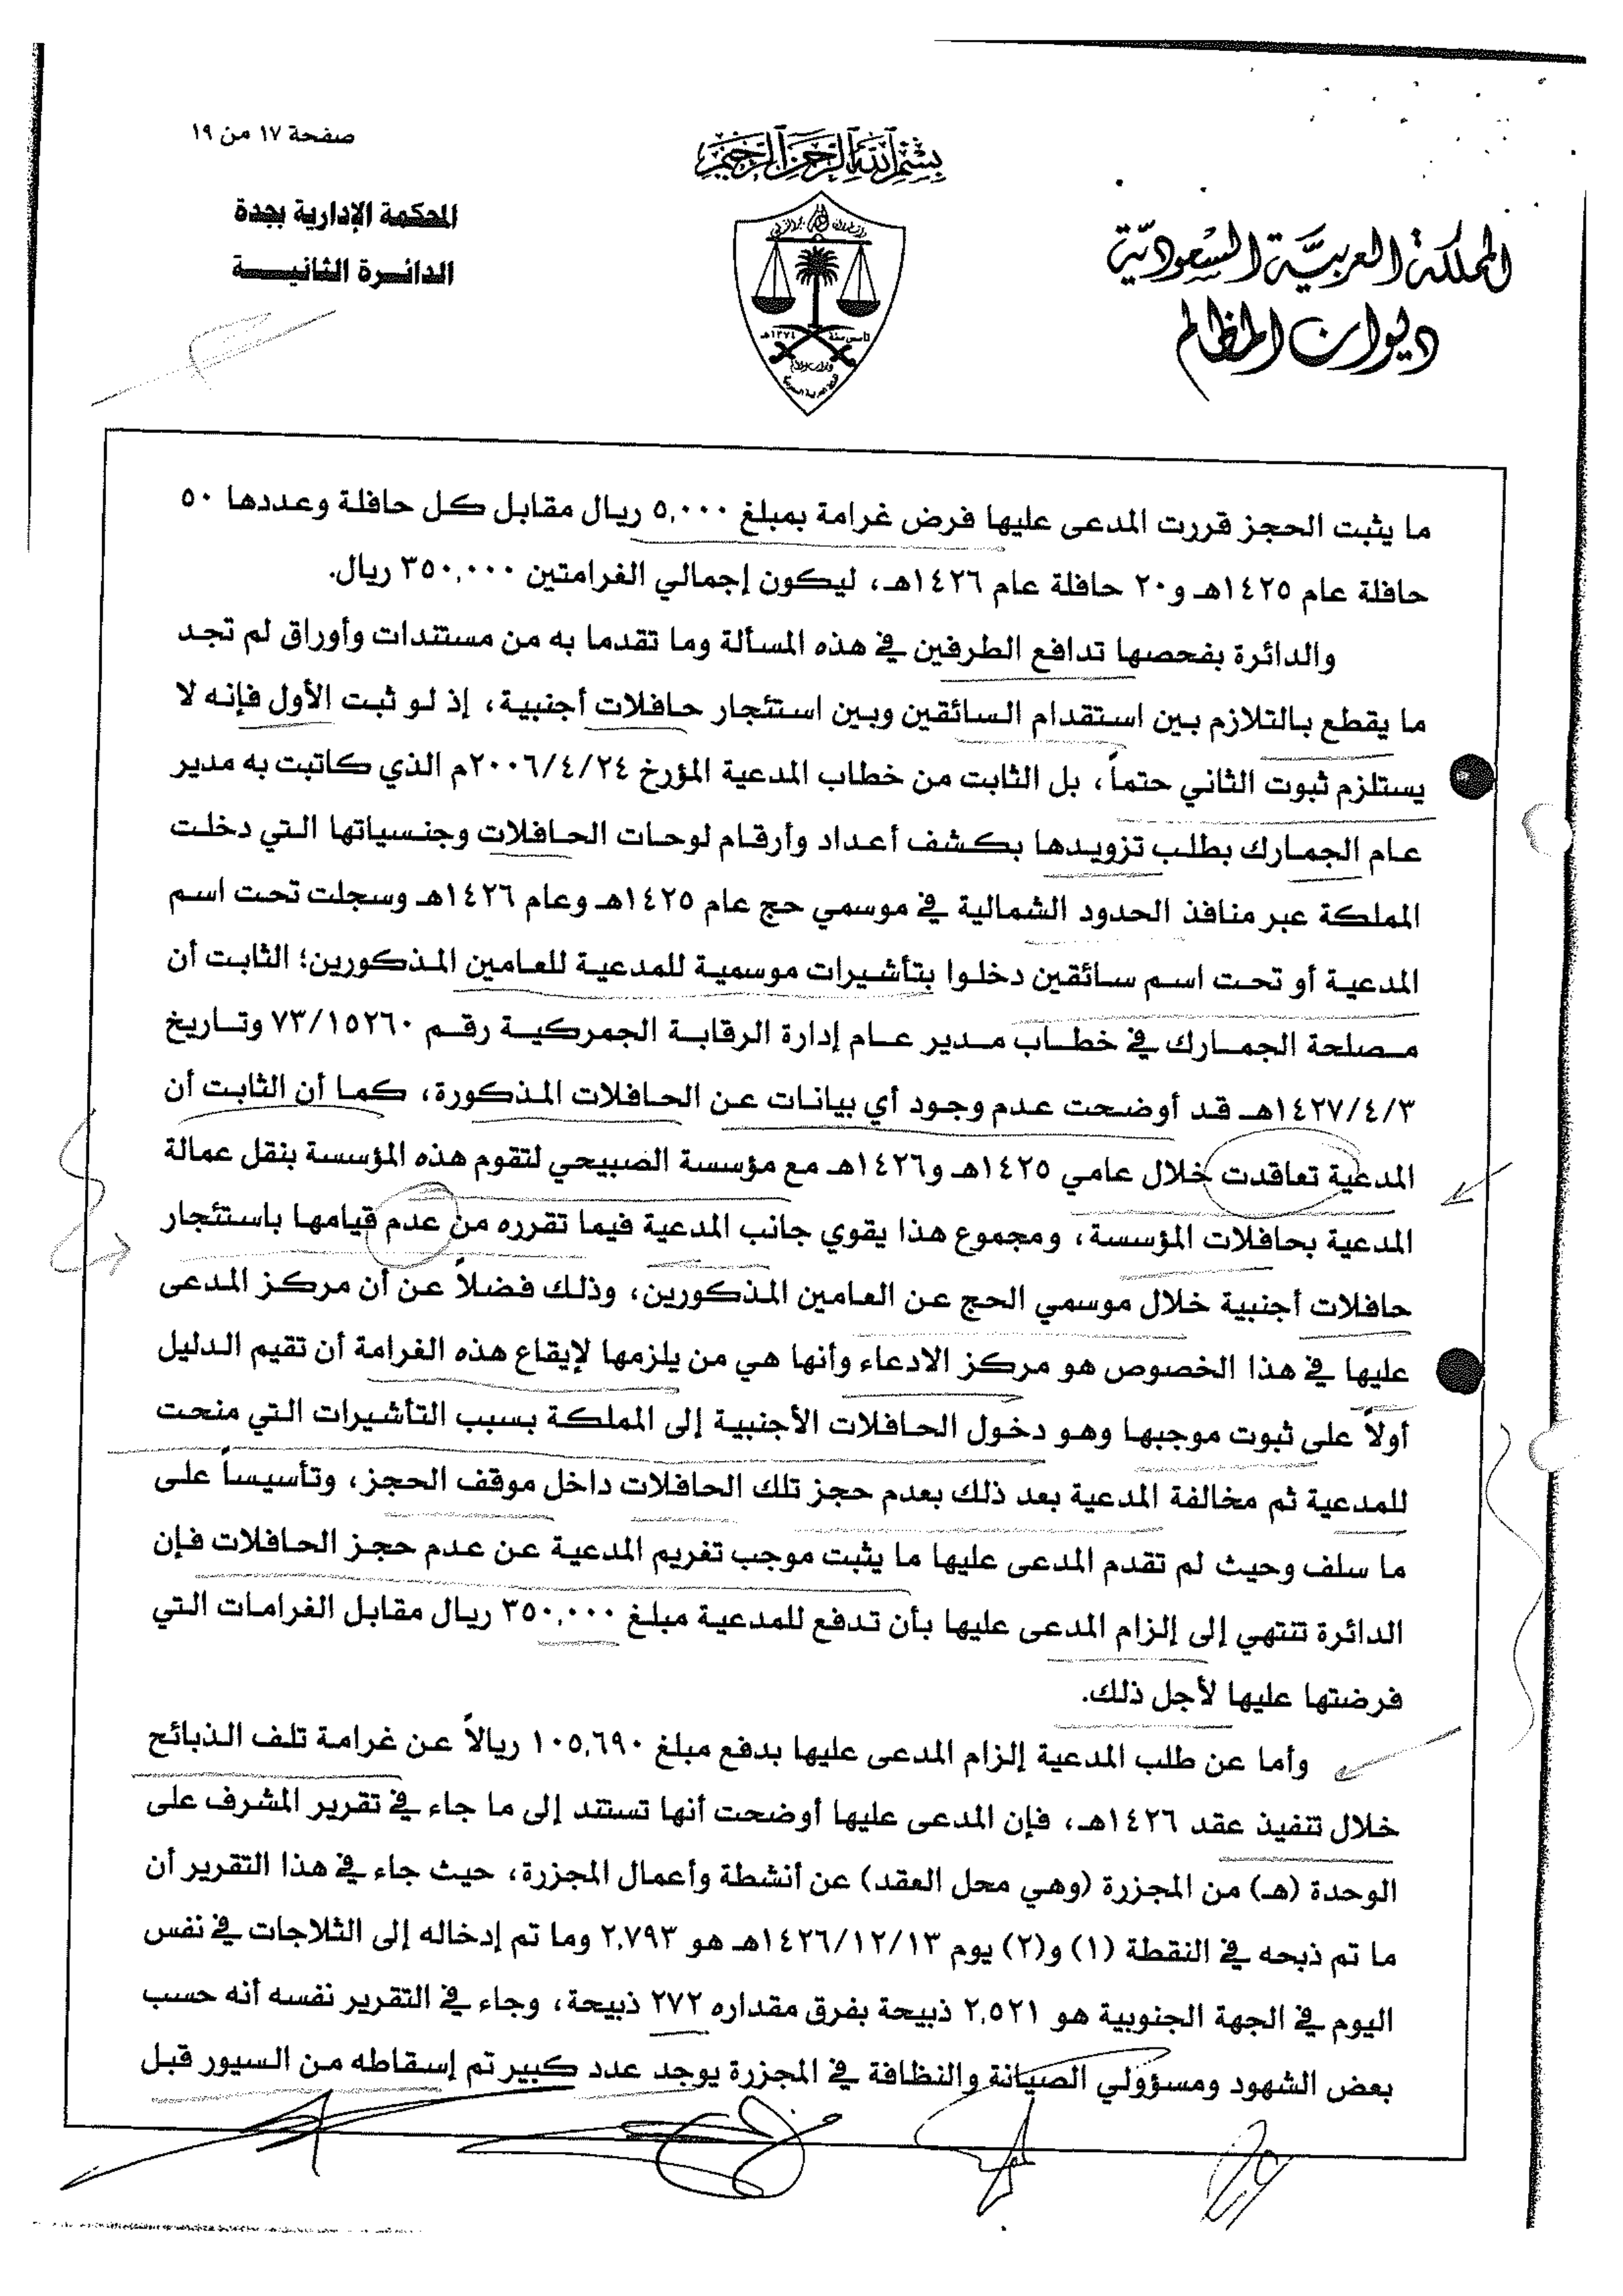 صفحة ١٧ من ١٩
بسم الله الرحمن الرحيم
المملكة العربية السعودية
ديوان المظالم
المحكمة الإدارية بجدة
الدائرة الثانيـــــة
ما يثبت الحجز قررت المدعى عليها فرض غرامة بمبلغ ٥,٠٠٠ ريال مقابل كل حافلة وعددها ٥٠
حافلة عام ١٤٢٥هـ و٢٠ حافلة عام ١٤٢٦هـ، ليكون إجمالي الغرامتين ٣٥٠,٠٠٠ ريال.
والدائرة بفحصها تدافع الطرفين في هذه المسألة وما تقدما به من مستندات وأوراق لم تجد
ما يقطع بالتلازم بين استقدام السائقين وبين استئجار حافلات أجنبية، إذ لو ثبت الأول فإنه لا
يستلزم ثبوت الثاني حتماً، بل الثابت من خطاب المدعية المؤرخ ٢٠٠٦/٤/٢٤م الذي كاتبت به مدير
عام الجمارك بطلب تزويدها بكشف أعداد وأرقام لوحات الحافلات وجنسياتها التي دخلت
المملكة عبر منافذ الحدود الشمالية في موسمي حج عام ١٤٢٥هـ وعام ١٤٢٦هـ وسجلت تحت اسم
المدعية أو تحت اسم سائقين دخلوا بتأشيرات موسمية للمدعية للعامين المذكورين؛ الثابت أن
مصلحة الجمارك في خطاب مدير عام إدارة الرقابة الجمركية رقم ٧٣/١٥٢٦٠ وتاريخ
١٤٢٧/٤/٣هـ قد أوضحت عدم وجود أي بيانات عن الحافلات المذكورة، كما أن الثابت أن
المدعية تعاقدت خلال عامي ١٤٢٥هـ و١٤٢٦هـ مع مؤسسة الصبيحي لتقوم هذه المؤسسة بنقل عمالة
المدعية بحافلات المؤسسة، ومجموع هذا يقوي جانب المدعية فيما تقرره من عدم قيامها باستئجار
حافلات أجنبية خلال موسمي الحج عن العامين المذكورين، وذلك فضلاً عن أن مركز المدعى
عليها في هذا الخصوص هو مركز الادعاء وأنها هي من يلزمها لإيقاع هذه الغرامة أن تقيم الدليل
أولاً على ثبوت موجبها وهو دخول الحافلات الأجنبية إلى المملكة بسبب التأشيرات التي منحت
للمدعية ثم مخالفة المدعية بعد ذلك بعدم حجز تلك الحافلات داخل موقف الحجز، وتأسيساً على
ما سلف وحيث لم تقدم المدعى عليها ما يثبت موجب تغريم المدعية عن عدم حجز الحافلات فإن
الدائرة تنتهي إلى إلزام المدعى عليها بأن تدفع للمدعية مبلغ ٣٥٠,٠٠٠ ريال مقابل الغرامات التي
فرضتها عليها لأجل ذلك.
وأما عن طلب المدعية إلزام المدعى عليها بدفع مبلغ ١٠٥,٦٩٠ ريالاً عن غرامة تلف الذبائح
خلال تنفيذ عقد ١٤٢٦هـ، فإن المدعى عليها أوضحت أنها تستند إلى ما جاء في تقرير المشرف على
الوحدة (هـ) من المجزرة (وهي محل العقد) عن أنشطة وأعمال المجزرة، حيث جاء في هذا التقرير أن
ما تم ذبحه في النقطة (١) و(٢) يوم ١٤٢٦/١٢/١٣هـ هو ٢,٧٩٣ وما تم إدخاله إلى الثلاجات في نفس
اليوم في الجهة الجنوبية هو ٢,٥٢١ ذبيحة بفرق مقداره ٢٧٢ ذبيحة، وجاء في التقرير نفسه أنه حسب
بعض الشهود ومسؤولي الصيانة والنظافة في المجزرة يوجد عدد كبير تم إسقاطه من السيور قبل